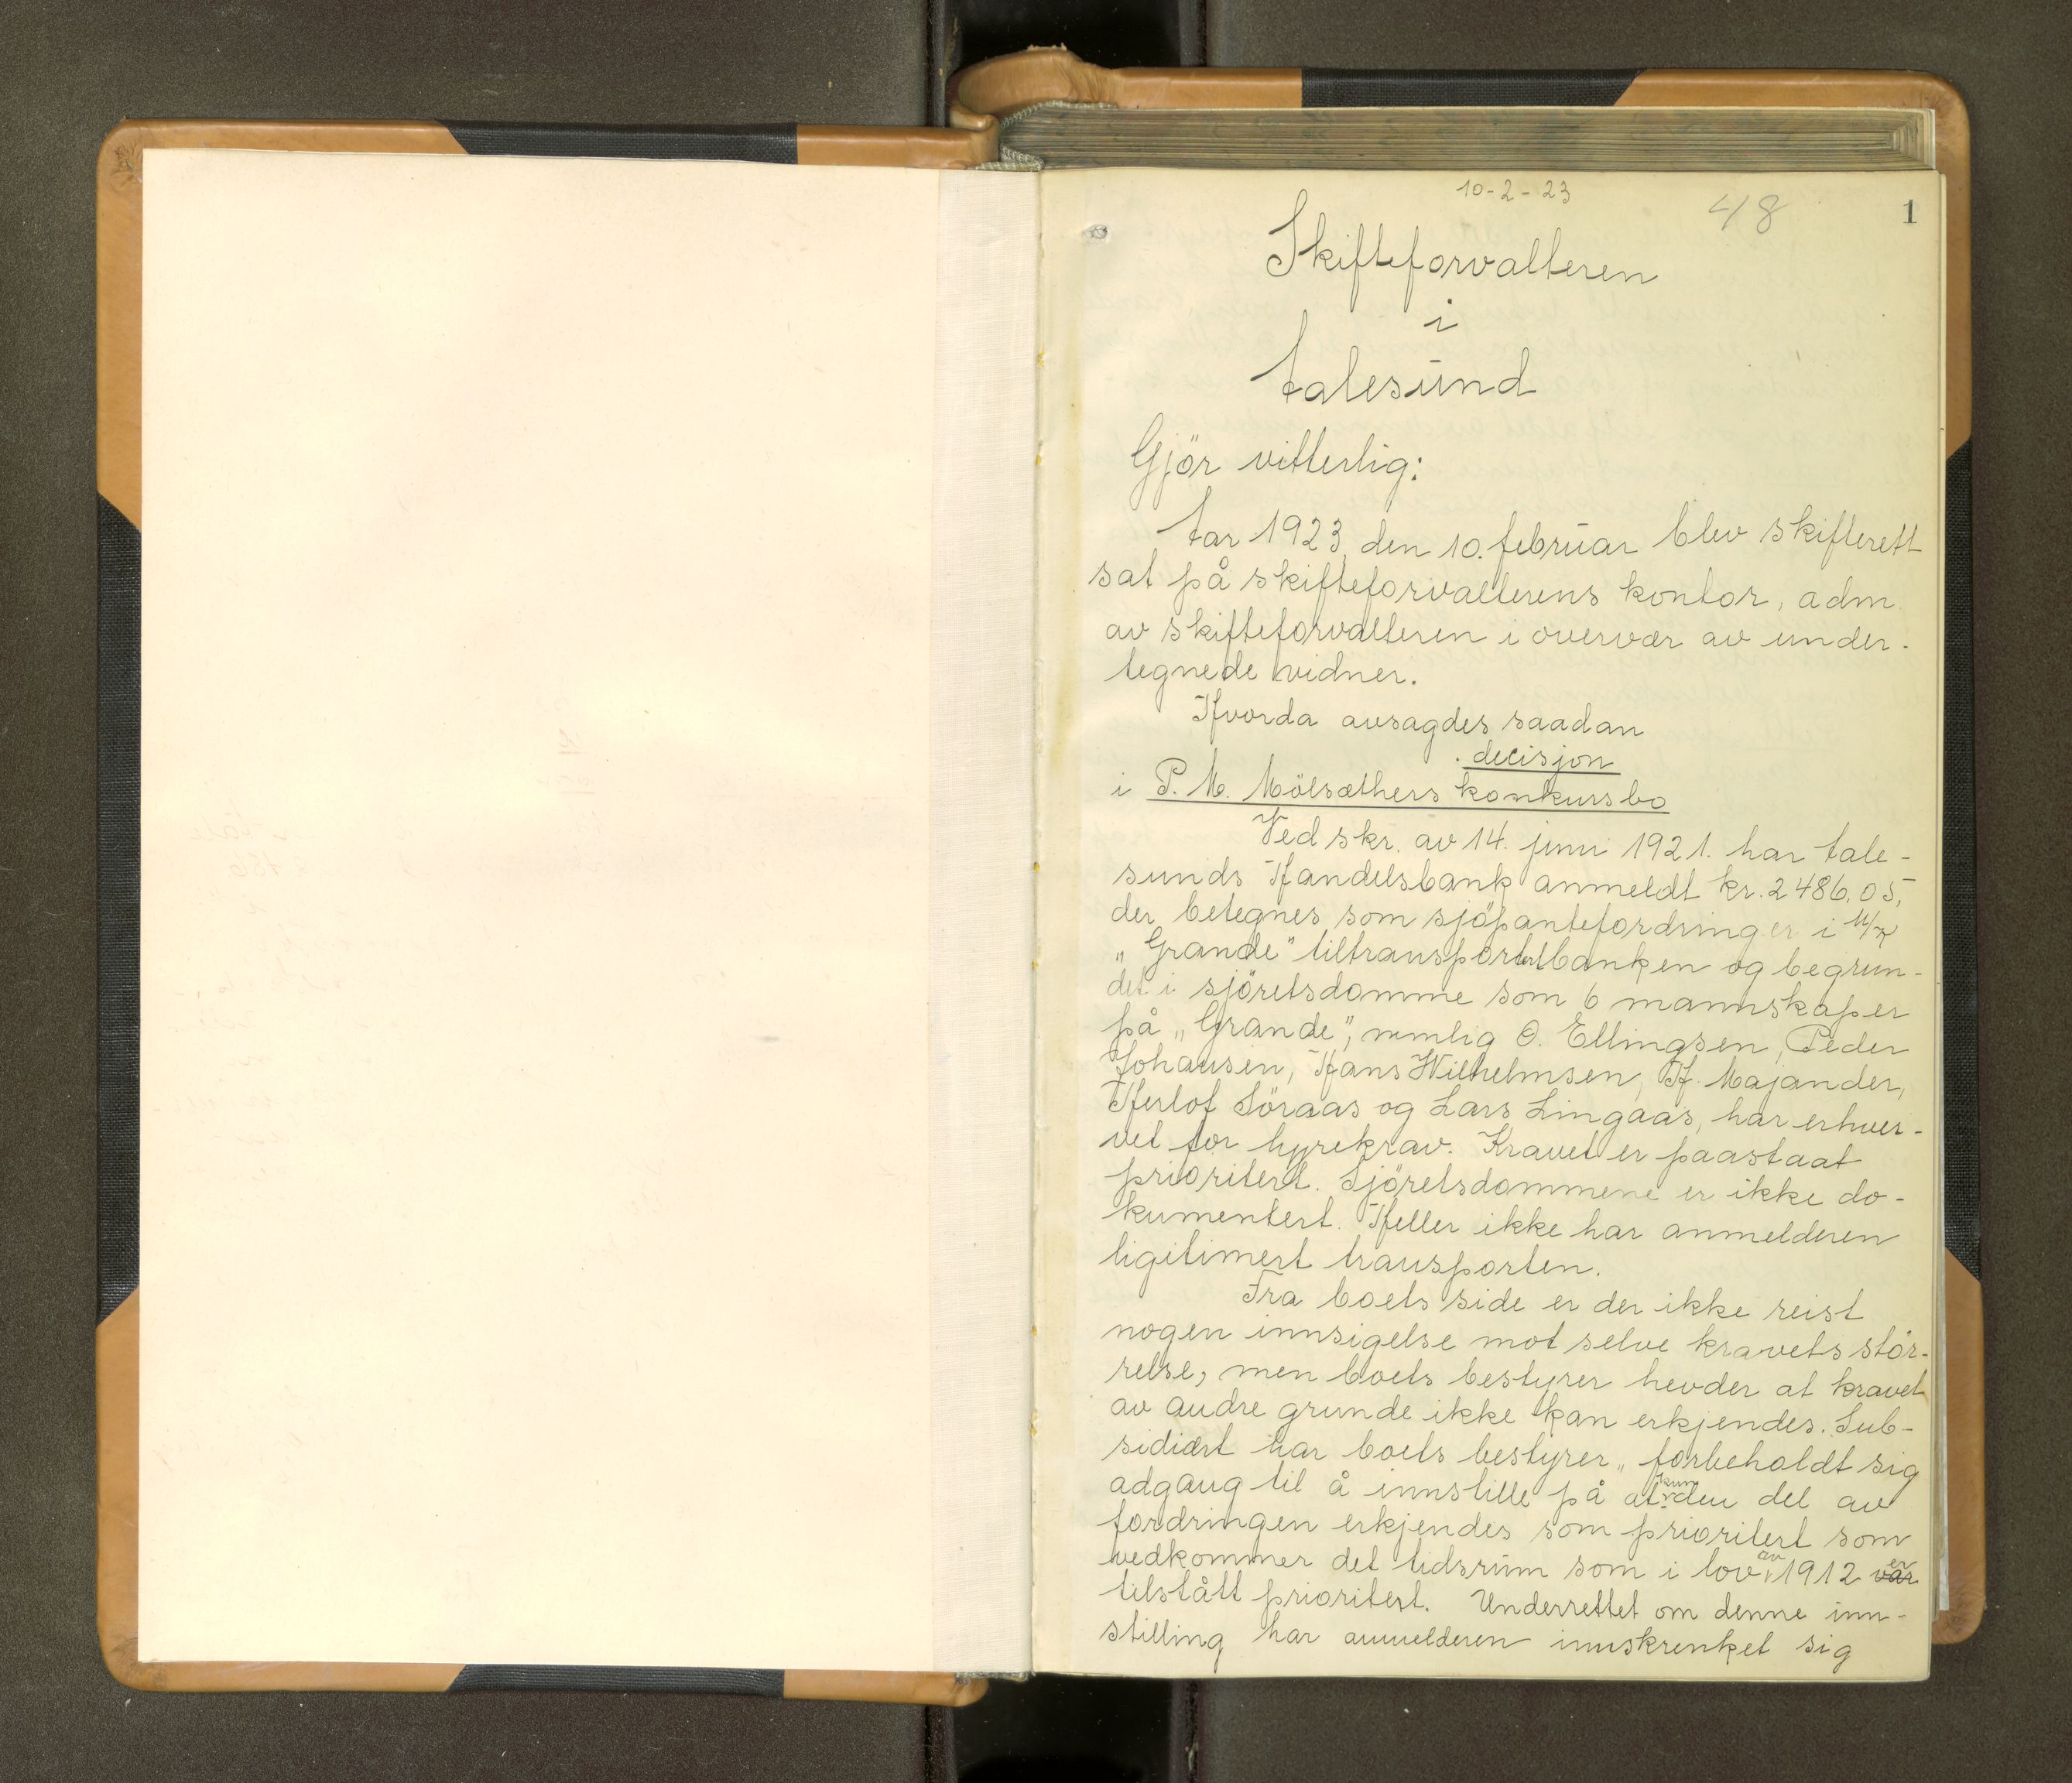 10-2-23
48
1
Skifteforvalteren
i
Aalesund
Gjör vitterlig:
Aar 1923, den 10. februar blev skifterett
sat på skifteforvalterens kontor, adm.
av skifteforvalteren i overvær av under-
tegnede vidner.
Hvorda avsagdes saadan
decisjon
i P. M. Mölsæthers konkursbo
Ved skr. av 14. juni 1921. har Aale-
sunds Handelsbank anmeldt kr. 2486,05,
der betegnes som sjöpantefordringer i M/K
„Grande" tiltransportert banken og begrun-
det i sjöretsdomme som 6 mannskaper
på „Grande", nemlig O. Ellingsen, Peder
Johansen, Hans Wilhelmsen, H. Majander,
Herlof Söraas og Lars Lingaas, har erhver-
vet for hyrekrav. Kravet er paastaat
prioritert. Sjöretsdommene er ikke do-
kumentert. Heller ikke har anmelderen
ligitimert transporten.
Fra boets side er der ikke reist
nogen innsigelse mot selve kravets stör-
relse, men boets bestyrer hevder at kravet
av andre grunde ikke kan erkjendes. Sub-
sidiært har boets bestyrer „forbeholdt sig
adgang til å innstille på at kun den del av
fordringen erkjendes som prioritert som
vedkommer det tidsrum som i lov av 1912 var er
tilstått prioritert. Underrettet om denne inn-
stilling har anmelderen innskrenket sig